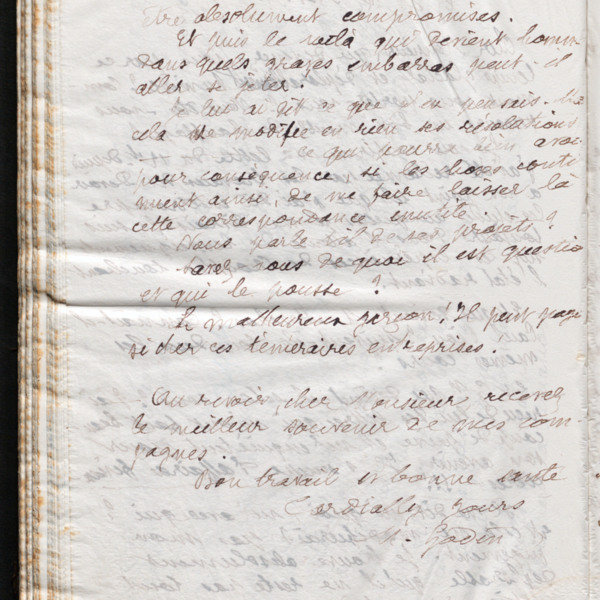 être absolument compromises.
Et puis le voilà qui devient homm
dans quels graves embarras peut-il
aller se jeter!
Je lui ai dit ce que j'en pensais. Ma
cela ne modifie en rien ses résolutions
ce qui pourra bien avoi
pour conséquence si les choses conti
nuent ainsi, de me faire laisser là
cette correspondance inutile.
Vous parle-t-il de ses projets?
Savez-vous de quoi il est questio
et qui le pousse?
Le malheureux garçon! Il peut paye
si cher ces téméraires entreprises.
Au revoir, cher Monsieur, recevez
le meilleur souvenir de mes com-
pagnes.
Bon travail et bonne santé
Cordially yours
Godin